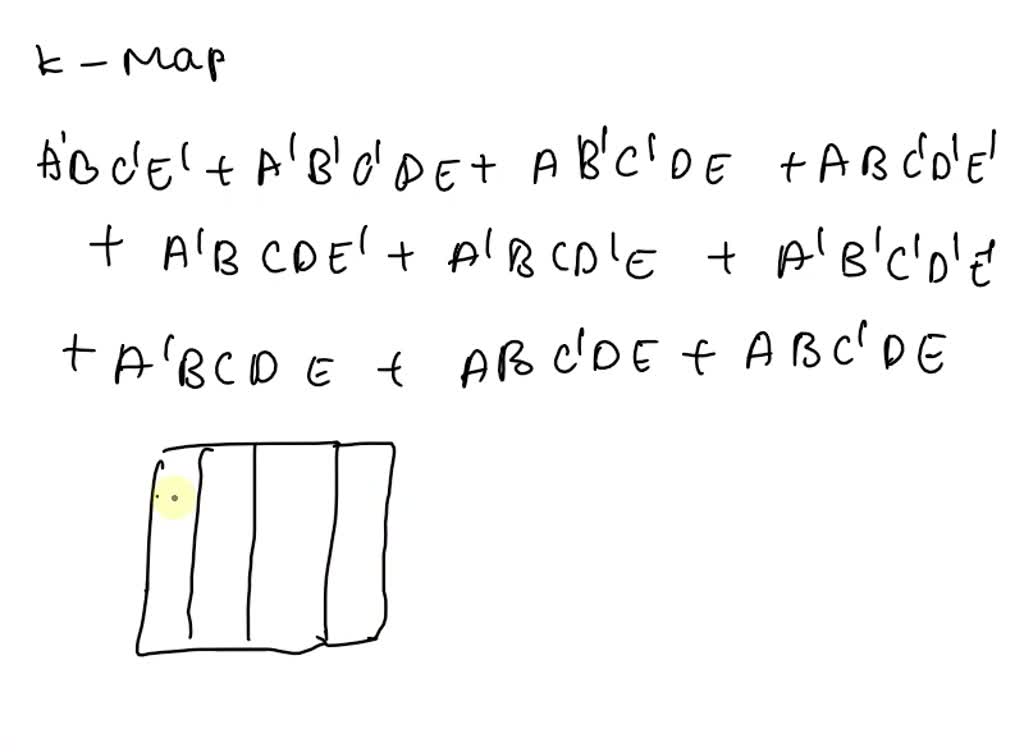 K - Map
A'BC'E' + A'B'C'DE + AB'C'DE + ABC'D'E'
+ A'BCDE' + A'BCD'E + A'B'C'D'E'
+ A'BCDE + ABC'DE + ABC'DE